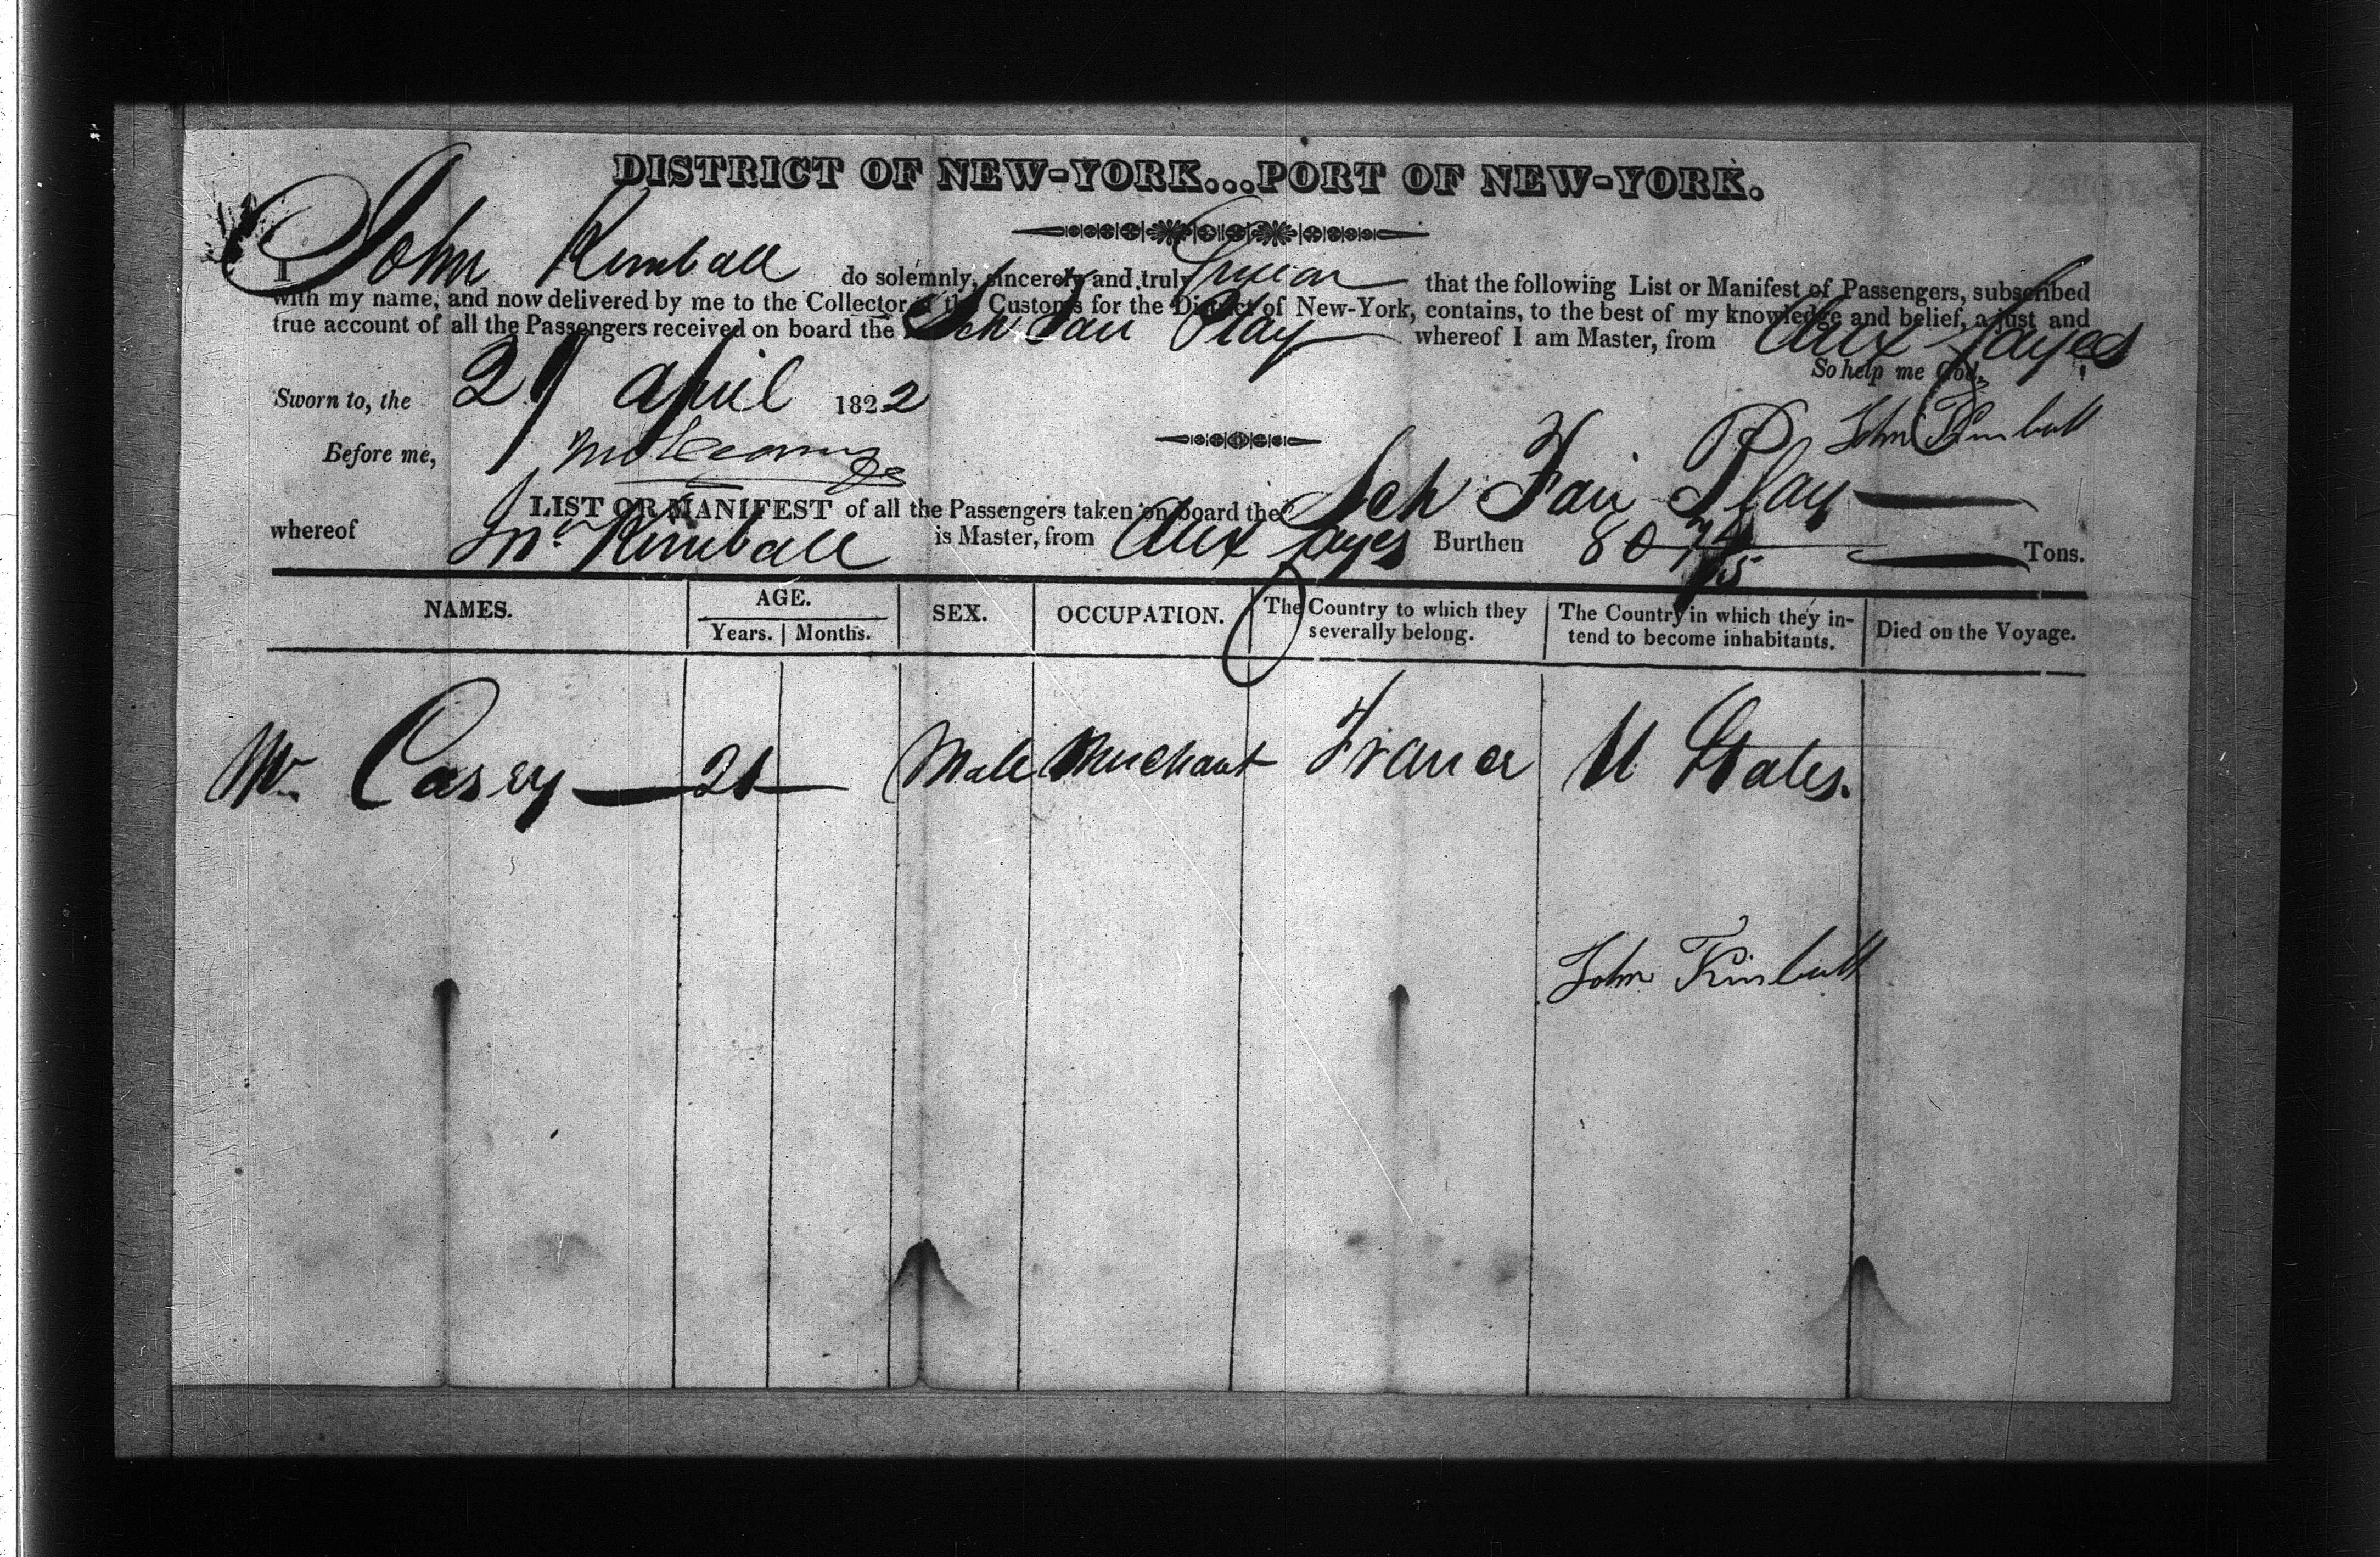 DISTRICT OF NEW-YORK...PORT OF NEW-YORK.
I John Kimball do solemnly, sincerely and truly Swear that the following List or Manifest of Passengers, subscribed
with my name, and now delivered by me to the Collector of the Customs for the District of New-York, contains, to the best of my knowledge and belief, a just and
true account of all the Passengers received on board the Sch Fair Play whereof I am Master, from Aux Cayes
So help me God.
Sworn to, the 29 April 1822
John Kimball
Before me,
LIST OR MANIFEST of all the Passengers taken on board the Sch Fair Play
whereof Jno. Kimball is Master, from Aux Cayes Burthen 80 74/95 Tons.
NAMES. AGE. SEX. OCCUPATION. The Country to which they severally belong. The Country in which they in-tend to become inhabitants. Died on the Voyage.
Years. Months.
Mr. Casey 21 Male Merchant France U States.
John Kimball